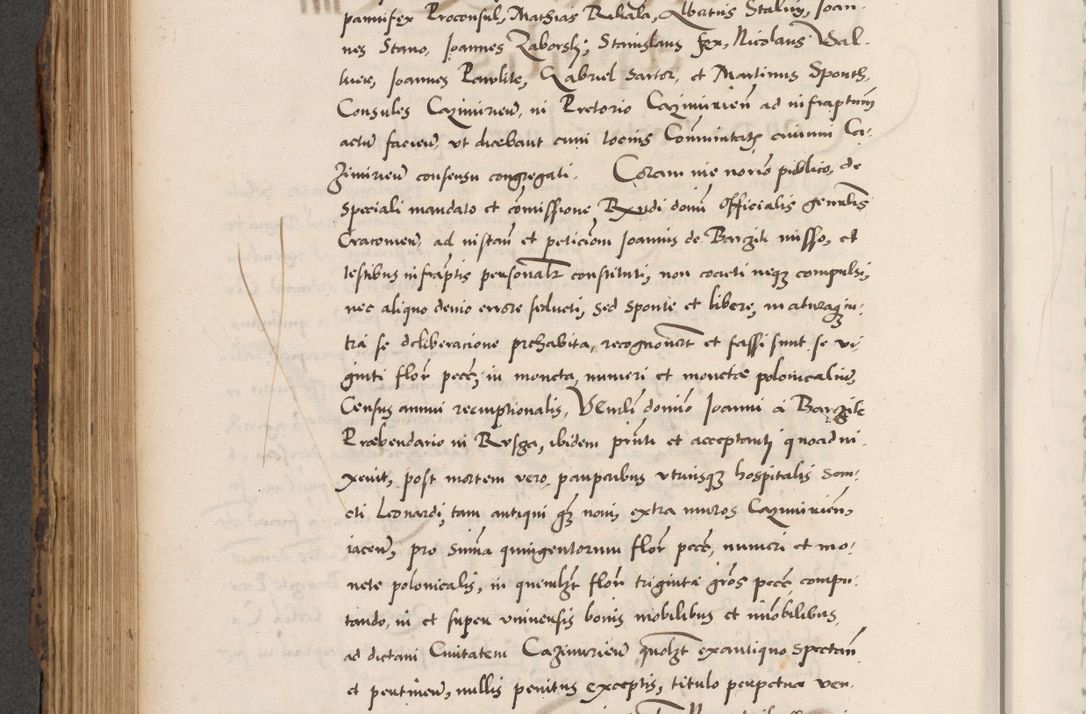 pannifex Proconsul, Mathias Rekala, Albertus Stalny, Joan-
nes Stano, Joannes Zaborski, Stanislaus fex, Nicolaus Wal-
Joannes Pawlite, Gabriel sartor, et Martinus Sponth,
Consules Cazimirien, in Pretorio Cazimirien ad infraptum
actum faciend, ut dicebant cum tocius Comunitatis civium Ca-
zimirien consensu congregati. Coram me norio publico, de
speciali mandato et comissione Rxndi domi Officialis genralis
Cracovien, ad instan et peticiom Joannis de Barczik misso, et
testibus infraptis personalr constituti, non coacti neqz compulsi,
nec aliquo devio errore seducti, sed sponte et libere, maturaqz in-
tra se deliberacione prehabita, recognovert et fassi sunt, se vi-
ginti flor pecc, in moneta, numeri et monetae polonicaliu,
Census annui reemptionalis, Venrli domino Joanni a Barczik
Praebendario in Rusza, ibidem pnti et acceptanti quoad vi-
xerit, post mortem vero, pauperibus utriusqz hospitalis San-
cti Leonardi, tam antiqui qz novi, extra muros Cazimirien,
iacen, pro suma quingentorum flor pecc, numeri et mo-
nete polonicalis, in quemlzt flor triginta gros pecc compu-
tando, in et super universis bonis mobilibus et imobilibus
ad dictam Civitatem Cazimirien quolzt exantiquo spectan
et pertinen, nullis penitus exceptis, titulo perpetuae ven-